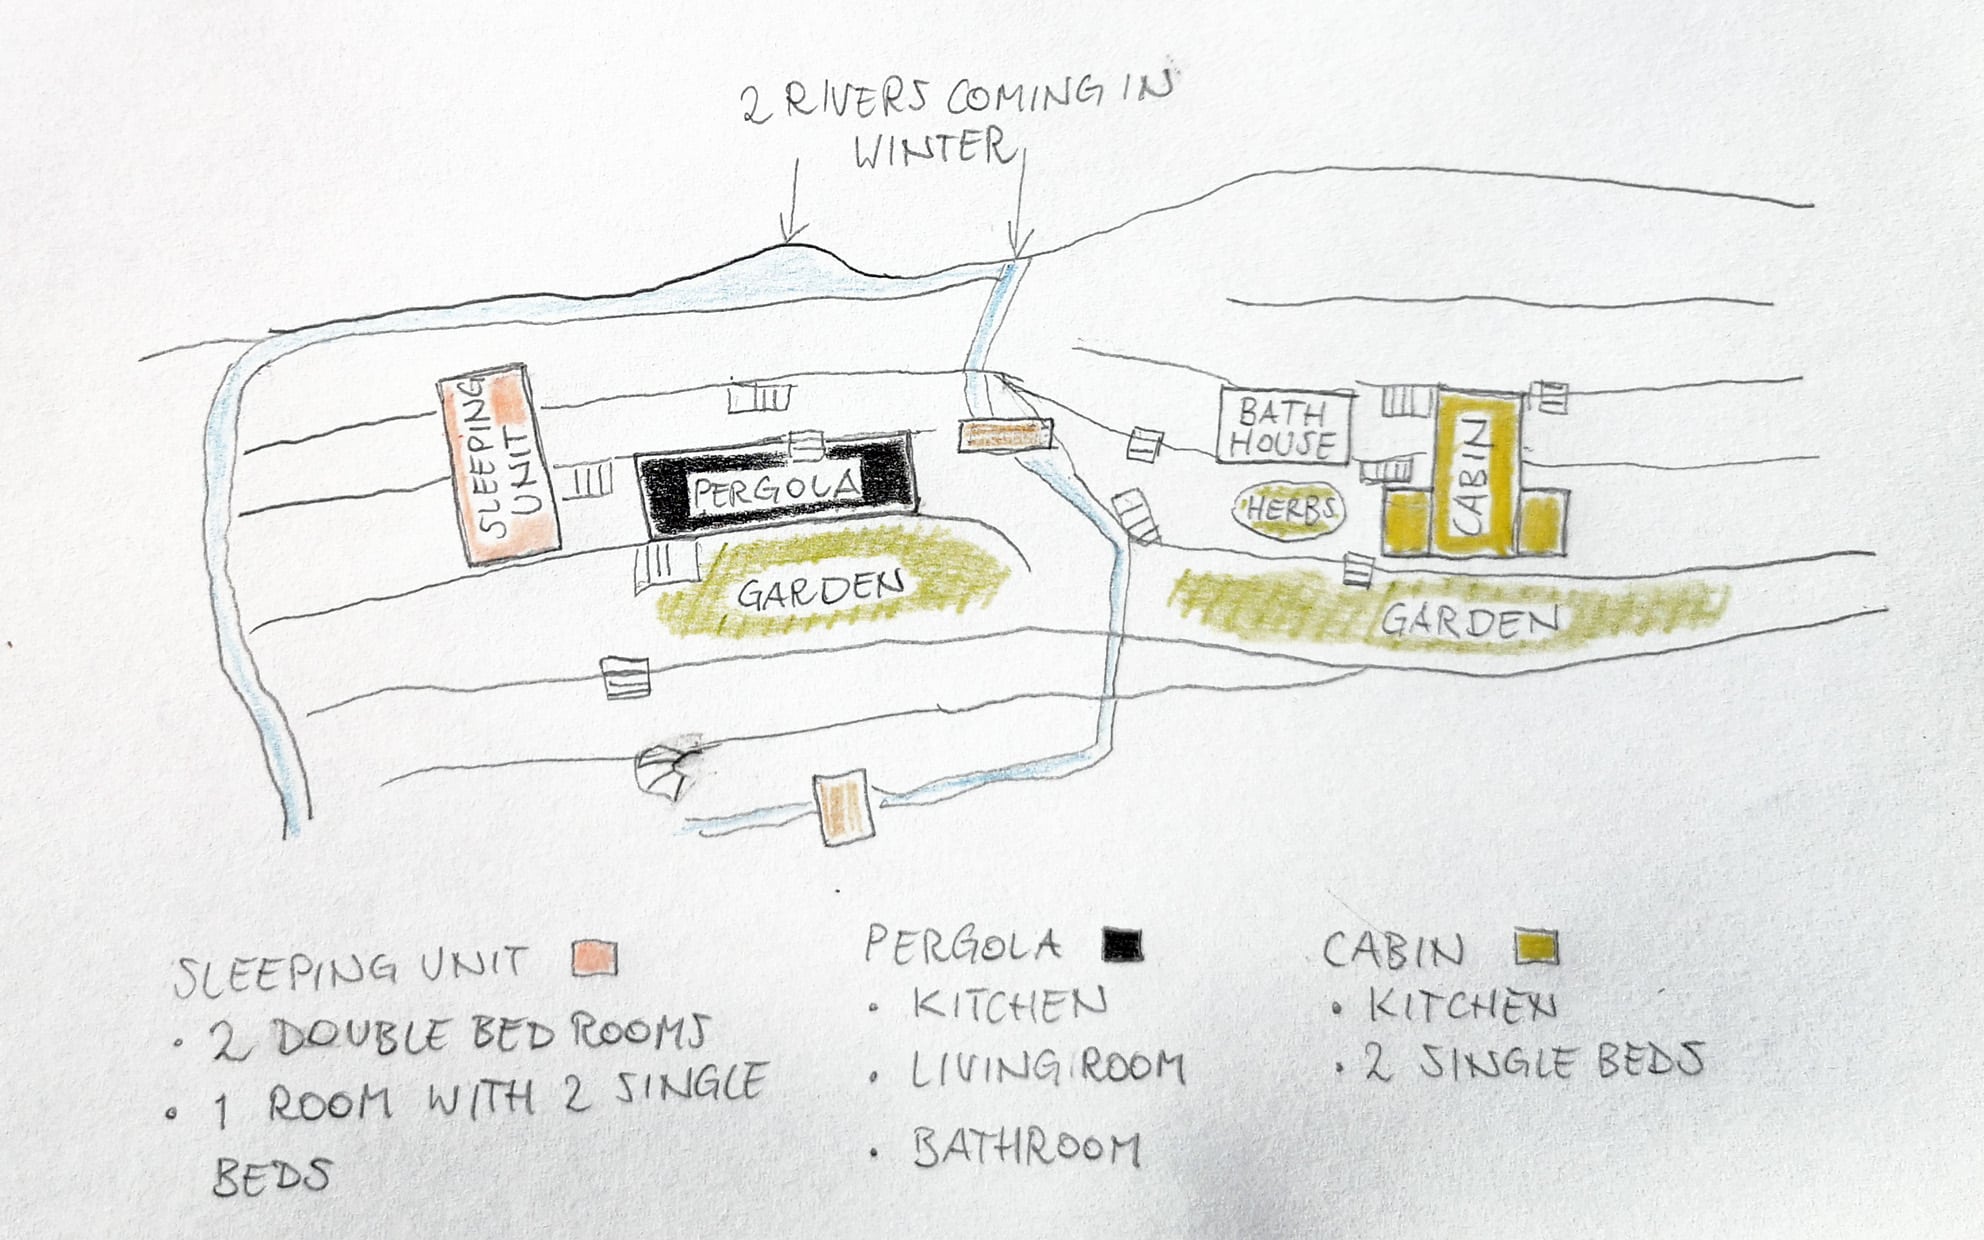 2 RIVERS COMING IN
WINTER
SLEEPING
UNIT
PERGOLA
GARDEN
BATH
HOUSE
HERBS
CABIN
GARDEN
SLEEPING UNIT
• 2 DOUBLE BED ROOMS
• 1 ROOM WITH 2 SINGLE
BEDS
PERGOLA
• KITCHEN
• LIVING ROOM
• BATHROOM
CABIN
• KITCHEN
• 2 SINGLE BEDS